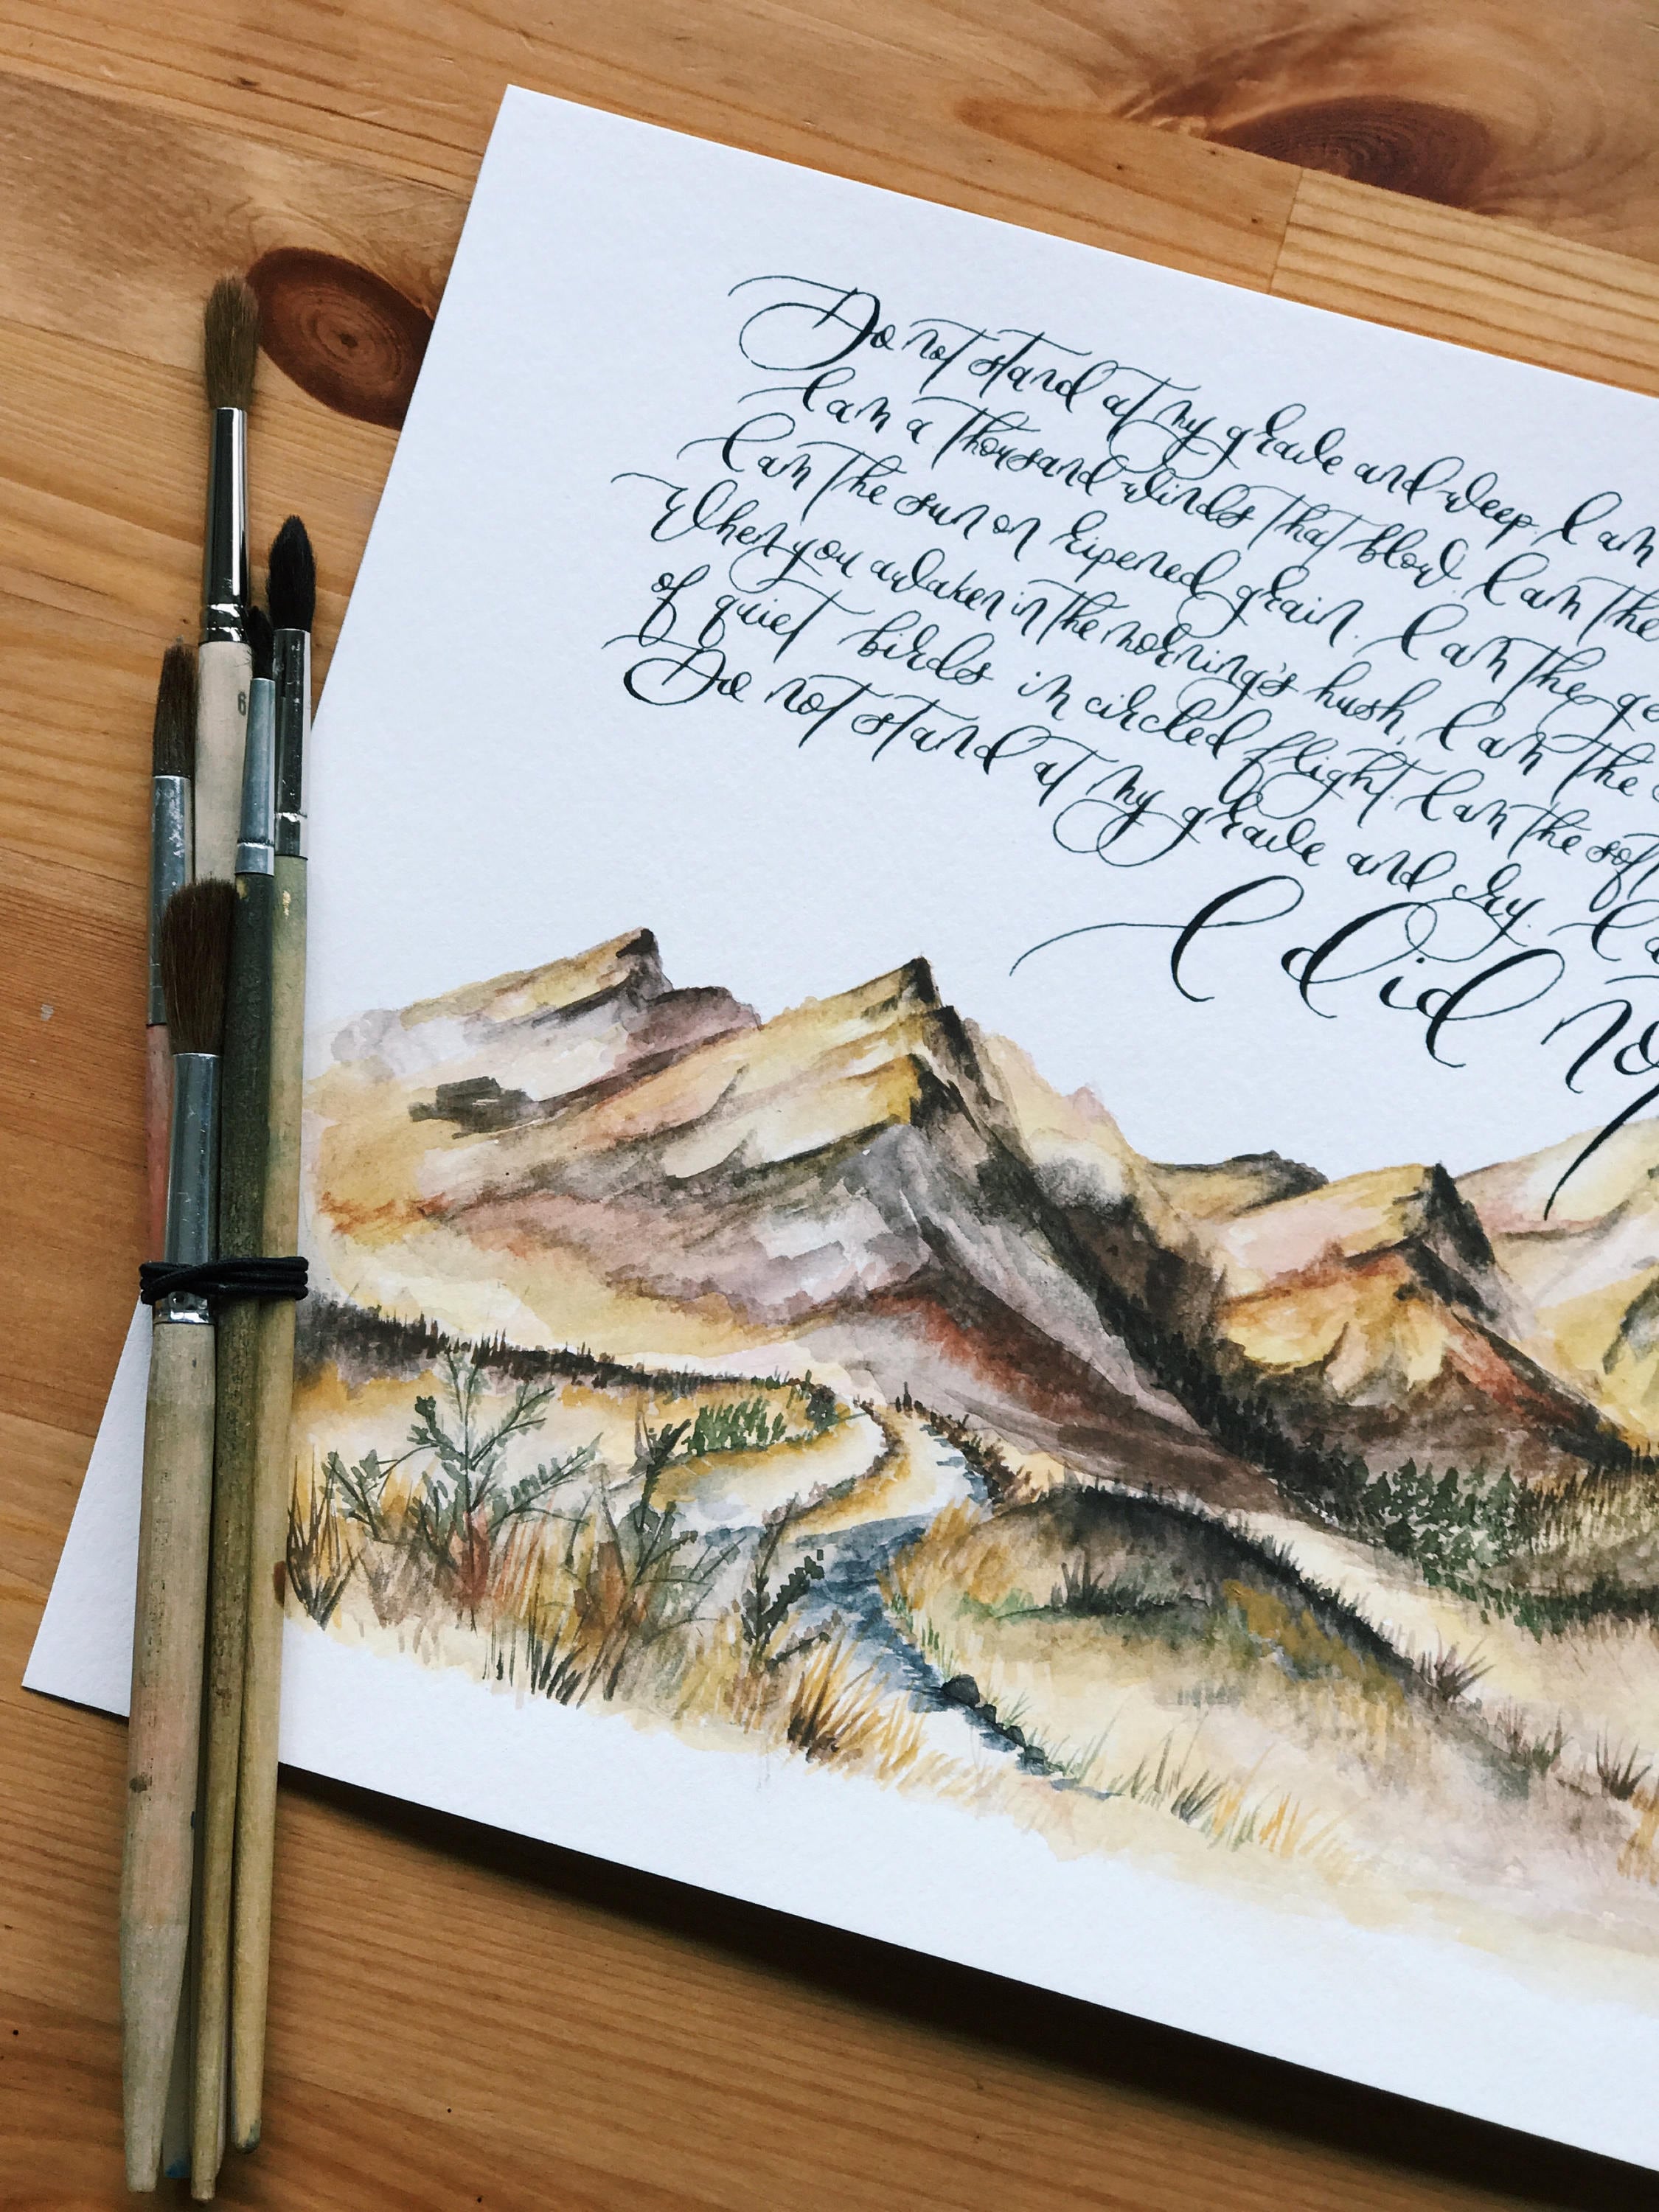 Do not stand at my grave and weep. I am
I am a thousand winds that blow. I am the
I am the sun on ripened grain. I am the ge
When you awaken in the morning's hush, I am the
of quiet birds in circled flight. I am the sof
Do not stand at my grave and cry. I a
I did no
6